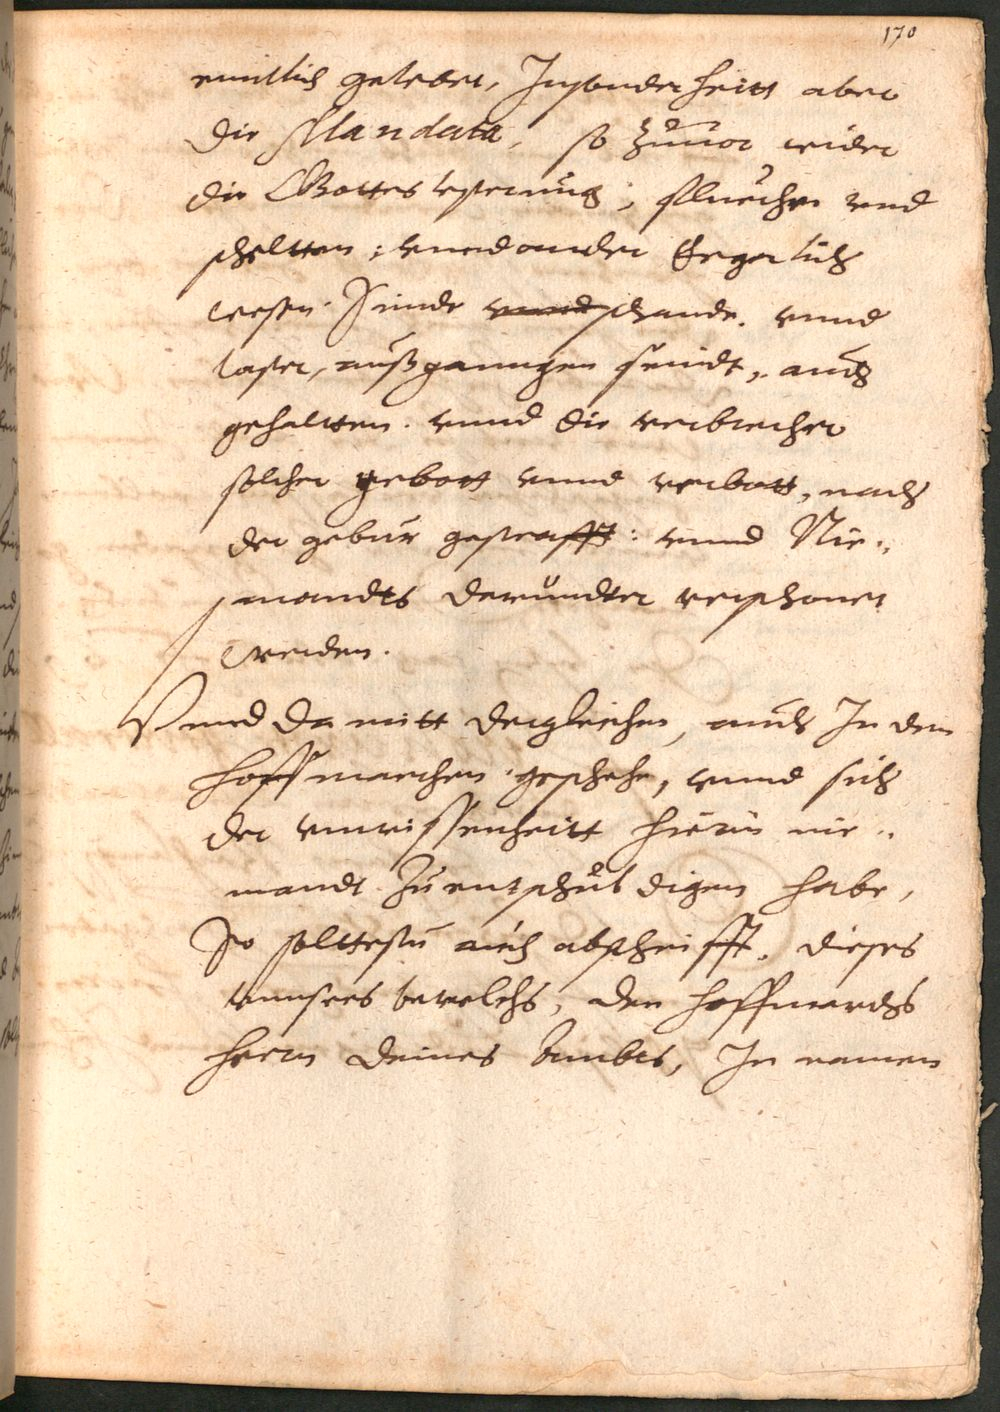 170
entlich gelebet, Insonderheitt aber
die Mandata, so zuuor wider
die Gottes lesterung, fluechen vnd
scheltten, vnnd ander Ergerlich
wesen. Sünde vnnd schande. vnnd
laster, außgangen seindt, auch
gehaltten. vnnd die verbrecher
solcher gebott vnnd verbott, nach
der gebür gestrafft: vnnd Nie-
mandts darundter verschonet
werden.
Vnnd damitt dergleichen, auch In den
hoffmarchen geschehe, vnnd sich
der vnwissenheitt hierin nie-
mandt zu entschuldigen habe,
So solltestu auch abschrifft, dieses
vnnsers beuelchs, den hoffmarchs
herrn deines Ambts, In namen